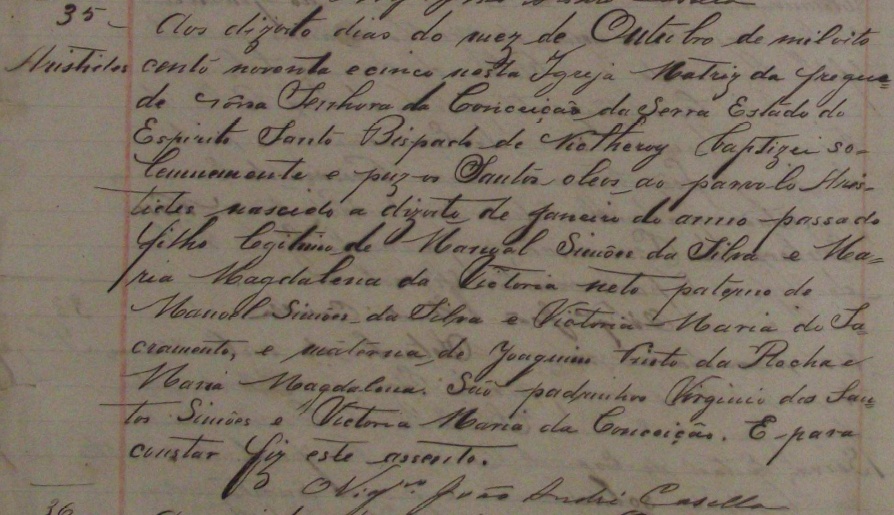 35-
Aos dizoito dias do mez de Outubro de miloito
Aristides
cento noventa e cinco nesta Igreja Matriz da fregue=
de Nóssa Senhora da Conceição da Serra Estado do
Espirito Santo Bispado de Nictheroy baptizei so-
lennemente e puz os Santos oleos ao parvolo Aris-
tides nascido a dizoito de Janeiro do anno passado
filho legitimo de Manoel Simões da Silva e Ma=
ria Magdalena da Victoria neto paterno de
Manoel Simões da Silva e Victoria Maria do Sa-
cramento, e materna de Joaquim Pinto da Rocha e
Maria Magdalena. São padrinhos Virginio dos San-
tos Simões e Victoria Maria da Conceição. E para
constar fiz este assento.
O Vigro João André Casella
36